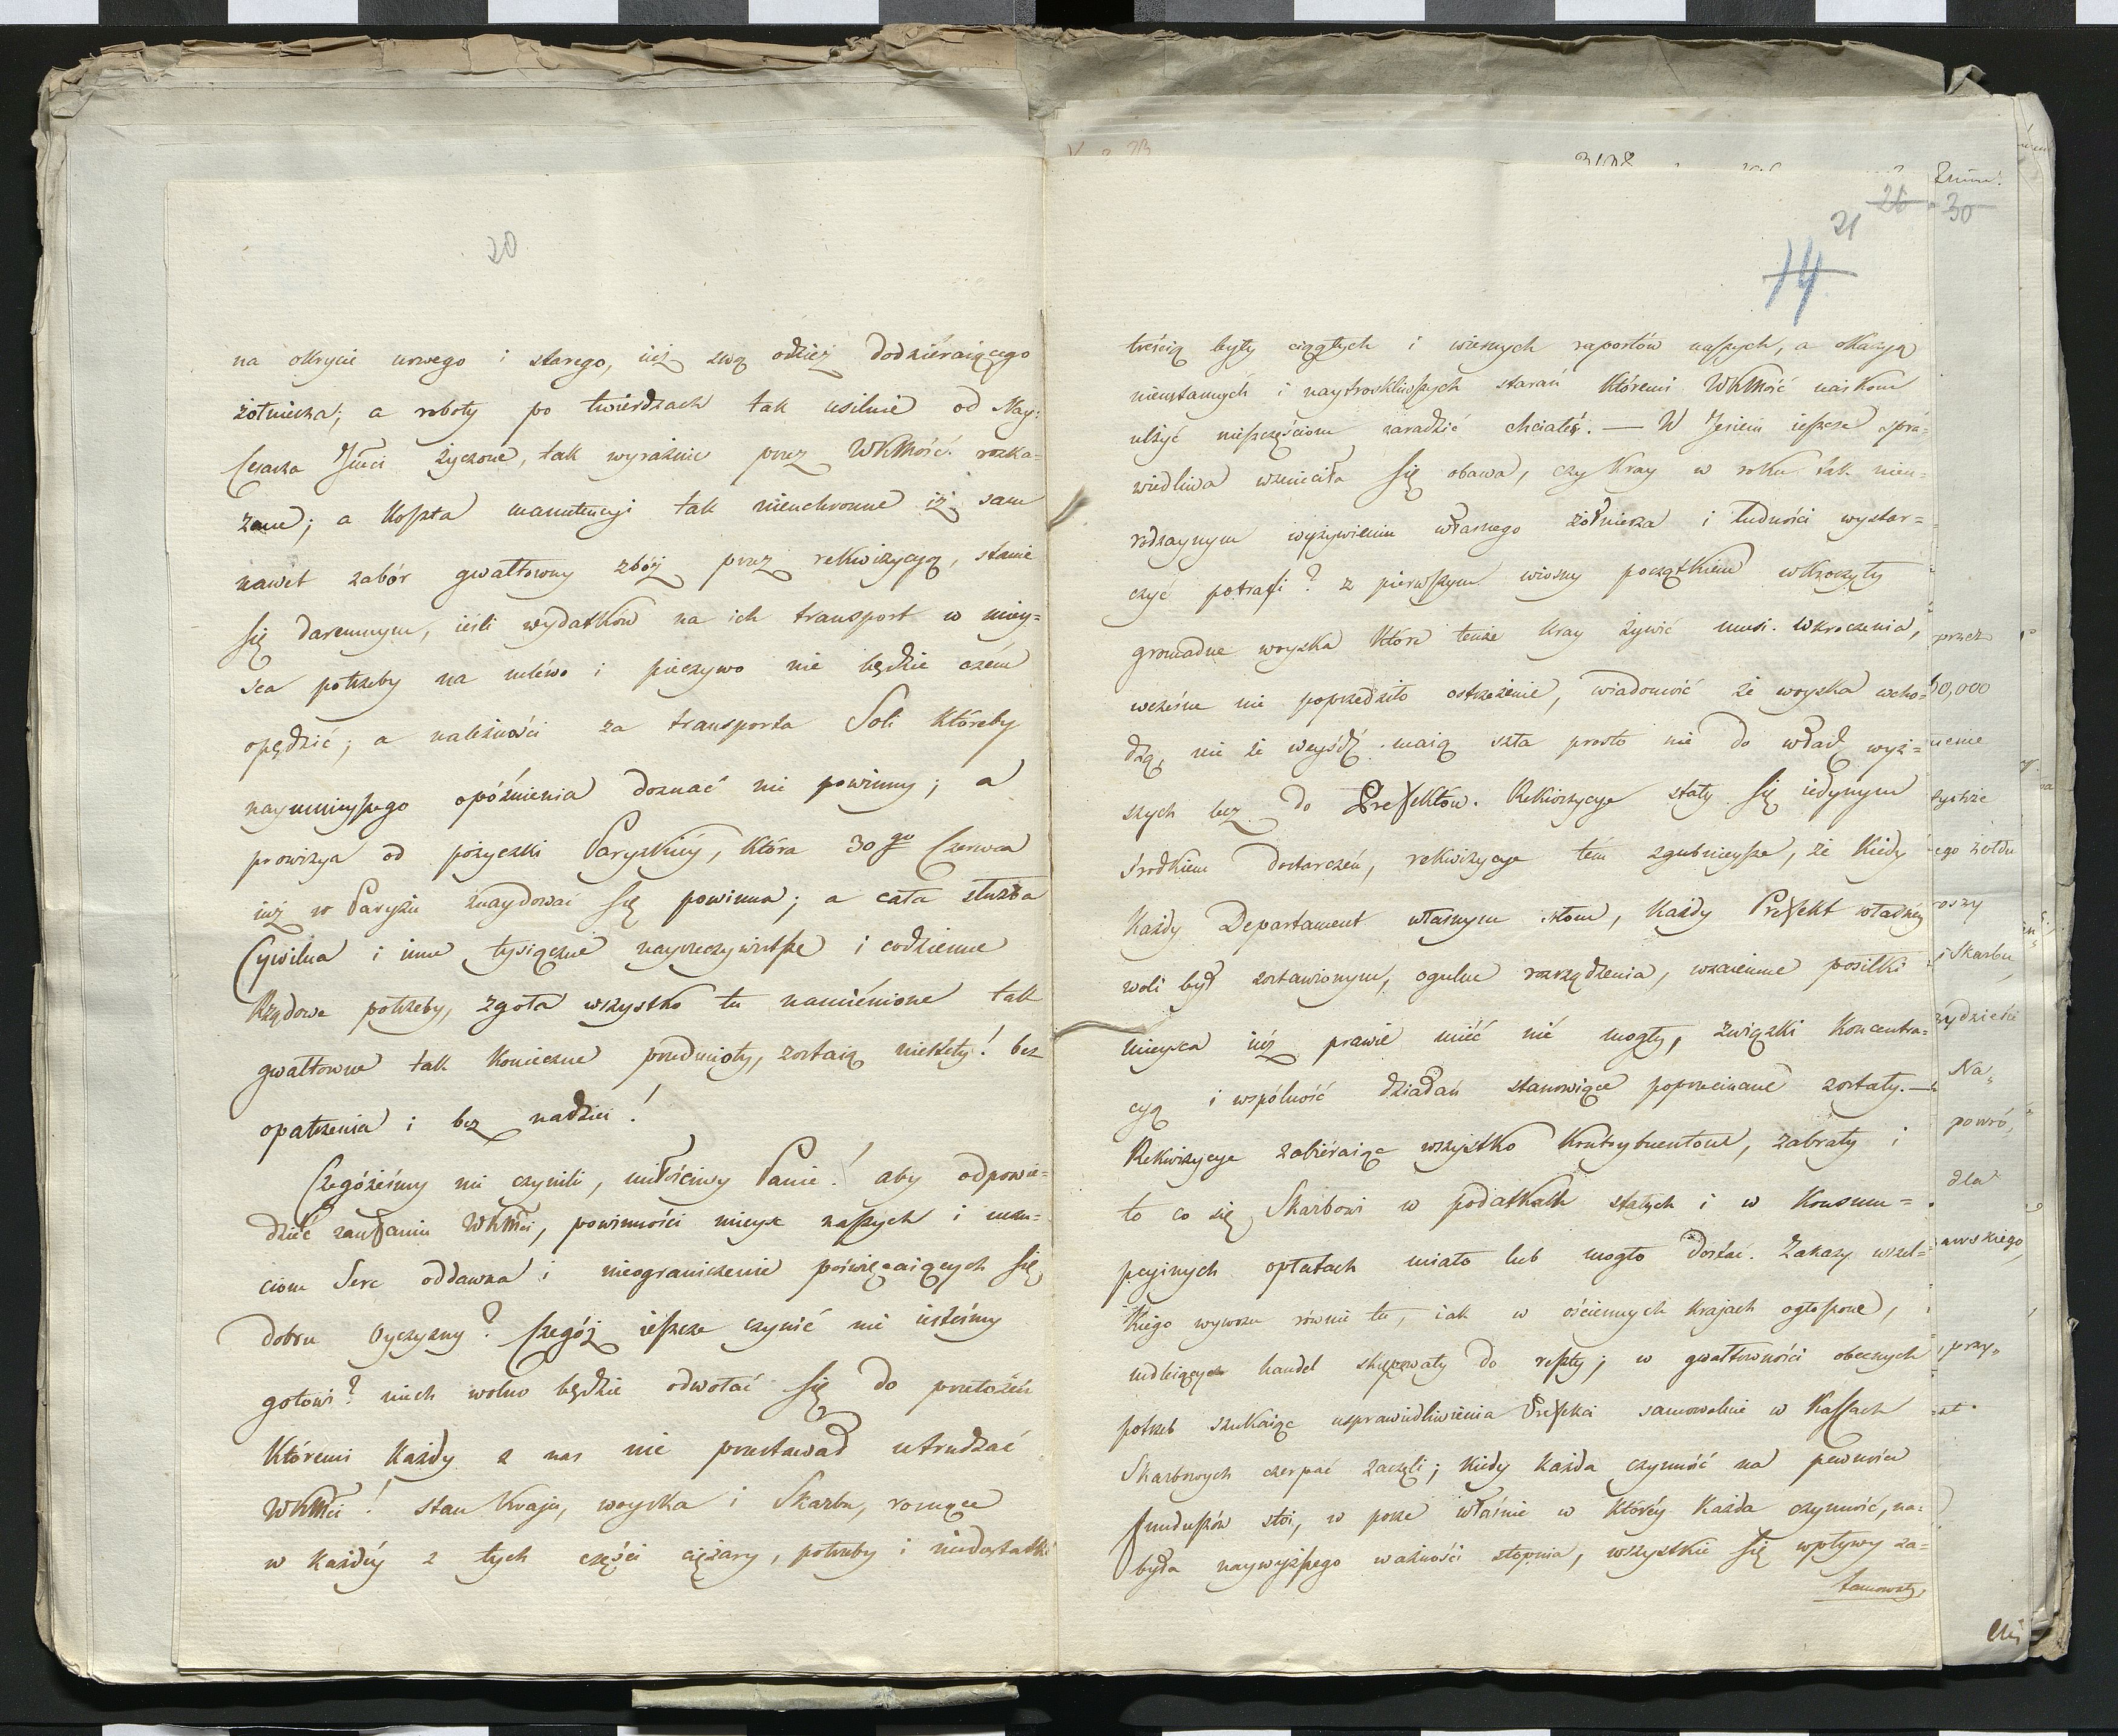 20
na okrycie nowego i starego, iuż swą odzież dodzieraiącego
żołnierza; a roboty po twierdzach tak usilnie od Nay:
Cesarza Jmci życzone, tak wyraźnie przez WKMość rozka-
zane; a koszta manutencyi tak nieuchronne iż sam
nawet zabór gwałtowny zbóż przez rekwizycyą, stanie
się daremnym, ieśli wydatków na ich transport w miey-
sca potrzeby na mléwo i pieczywo nie będzie czém
opędzić; a należności za transporta Soli któreby
naymnieyszego opóźnienia doznać nie powinny; a
prowizya od pożyczki Paryzkiéy, która 30go Czerwca
iuż w Paryżu znaydować się powinna; a cała służba
Cywilna i inne tysiączne nayrzeczywistsze i codzienne
Rządowe potrzeby, zgoła wszystko tu namiénione tak
gwałtowne tak konieczne przedmioty, zostaią niestety! bez
opatrzenia i bez nadziei!
Czegóżeśmy nie czynili, miłościwy Panie! aby odpowie-
dzieć zaufaniu WKMci, powinności mieysc naszych i uczu-
ciom Serc oddawna i nieograniczenie poświęcaiących się
dobru Oyczyzny? Czegóż ieszcze czynić nie iesteśmy
gotowi? niech wolno będzie odwołać się do przełożeń
któremi każdy z nas nie przestawał utrudzać
WKMci! stan Kraju, woyska i Skarbu, rosnące
w każdéy z tych części ciężary, potrzeby i niedostatki
26 30
21
14
treścią były ciągłych i wiernych raportów naszych, a okazyą
nieustannych i naytroskliwszych starań któremi WKMość uciskom
ulżyć nieszczęściom zaradzić chciałeś. — W Jesieni ieszcze spra-
wiedliwa wznieciła się obawa, czy kray w roku tak nieu-
rodzaynym wyżywieniu własnego żołnierza i ludności wystar-
czyć potrafi? z pierwszym wiosny początkiem wkroczyły
gromadne woyska które tenże kray żywić musi. Wkroczenia,
wcześne nie poprzedziło ostrzeżenie, wiadomość że woyska wcho-
dzą, nie że weyśdź maią szła prosto nie do władz wyż-
szych lecz do Prefektów. Rekwizycye stały się iedynym
środkiem dostarczeń, rekwizycye tém zgubnieysze, że kiedy
każdy Departament własnym siłom, każdy Prefekt własnéy
woli był zostawionym, ogulne rozrządzenia, wzaiemne posiłki
mieysca iuż prawie mieć nié mogły, związki koncentra-
cyą i wspólność działań stanowiące poprzecinane zostały. —
Rekwizycye zabiéraiąc wszystko Kontrybuentom, zabrały i
to co się Skarbowi w podatkach stałych i w konsum-
pcyinych opłatach miało lub mogło dostać. Zakazy wszel-
kiego wywozu równie tu, iak w ościennych krajach ogłoszone,
mdleiący handel skrępowały do reszty; w gwałtowności obecnych
potrzeb szukaiąc usprawiedliwienia Prefekci samowolnie w Kassach
Skarbowych czerpać zaczęli; kiedy każda czynność na pewności
funduszów stoi, w porze właśnie w któréy każda czynność, na-
była naywyższego ważności stopnia, wszystkie się wpływy za-
tamowały
przez
00,000
ucene
tychże
ego żołdu
roszy
i Skarbu
rzydzieści
Na
powró,
dla
awskiego
przy„